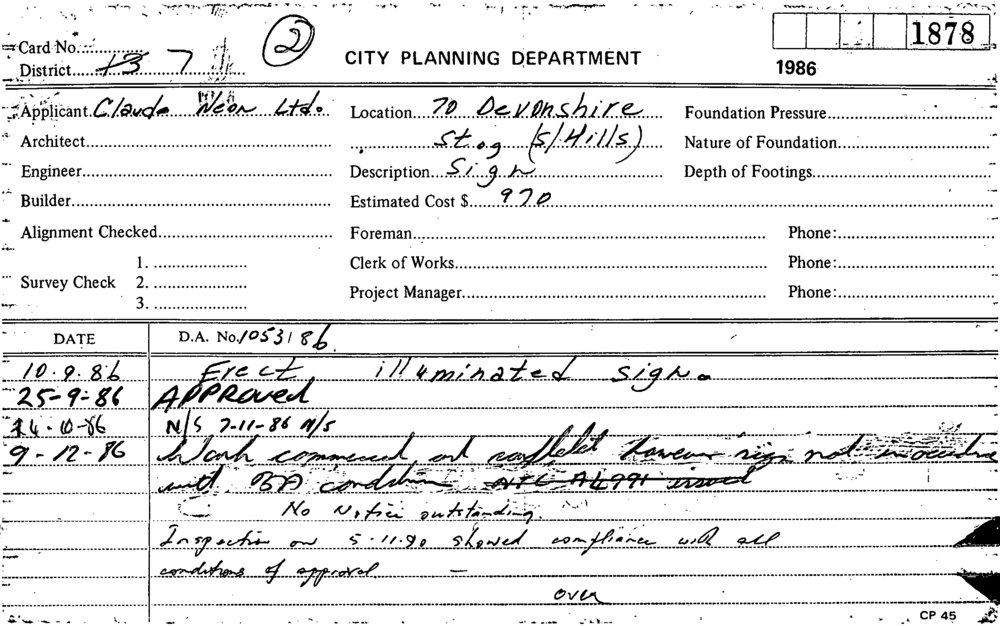 Card No.
District 13 7
2
CITY PLANNING DEPARTMENT
1878
1986
Applicant Claude Neon Ltd.
Location 70 Devonshire
Foundation Pressure
Architect
St., (S/Hills)
Nature of Foundation
Engineer
Description Sign
Depth of Footings
Builder
Estimated Cost $ 970
Alignment Checked
Foreman
Phone:
1.
Clerk of Works
Phone:
Survey Check 2.
Project Manager
Phone:
3.
DATE
D.A. No. 1053/86
10.9.86 Erect illuminated sign.
25-9-86 APPROVED
14-10-86 N/S 7-11-86 N/S
9-12-86 Work commenced and complet however sign not in accordance
with BA condition issued
No Notice outstanding.
Inspection on 5.11.90 showed compliance with all
conditions of approval —
over
CP 45